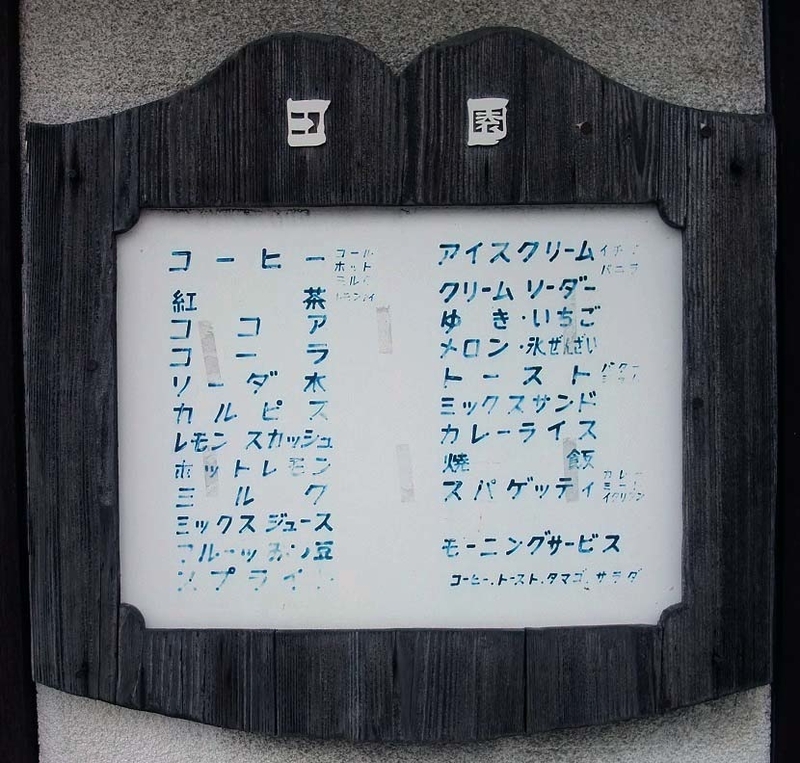 田 園
コーヒー コール
ホット
ミルク
紅茶 レモンティ
ココア
コーラ
ソーダ水
カルピス
レモンスカッシュ
ホットレモン
ミルク
ミックスジュース
フルーツみつ豆
アイスクリーム イチゴ
バニラ
クリームソーダー
ゆき・いちご
メロン・氷ぜんざい
トースト バター
ミックスサンド
カレーライス
焼飯
スパゲッティ カレー
ミート
イタリアン
モーニングサービス
コーヒー.トースト.タマゴ.サラダ